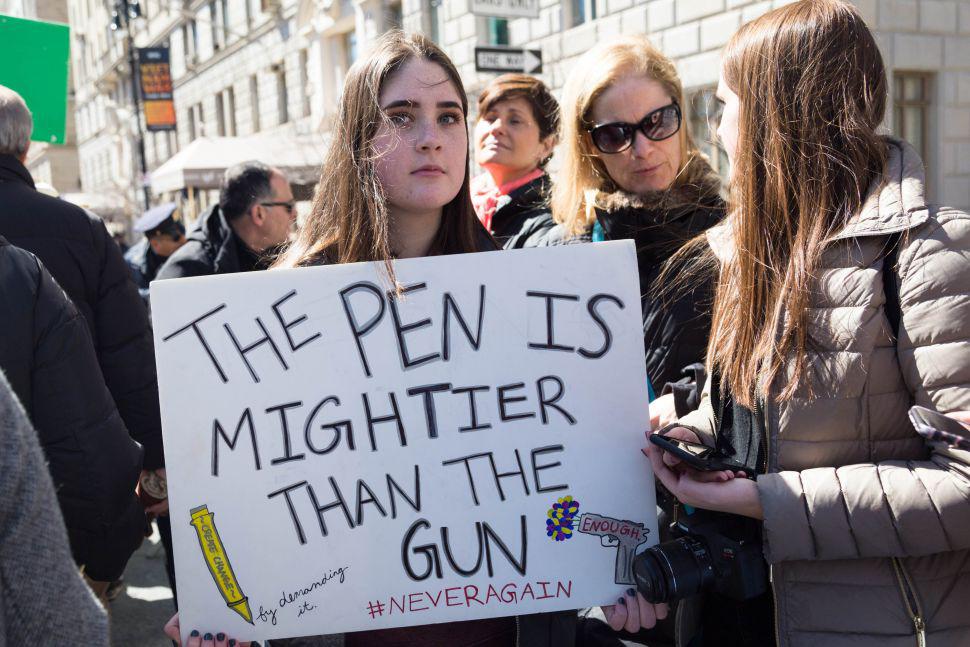 ONE WAY
THE PEN IS
MIGHTIER
THAN THE
GUN
ENOUGH.
CREATE CHANGE~
by demanding
it.
#NEVERAGAIN